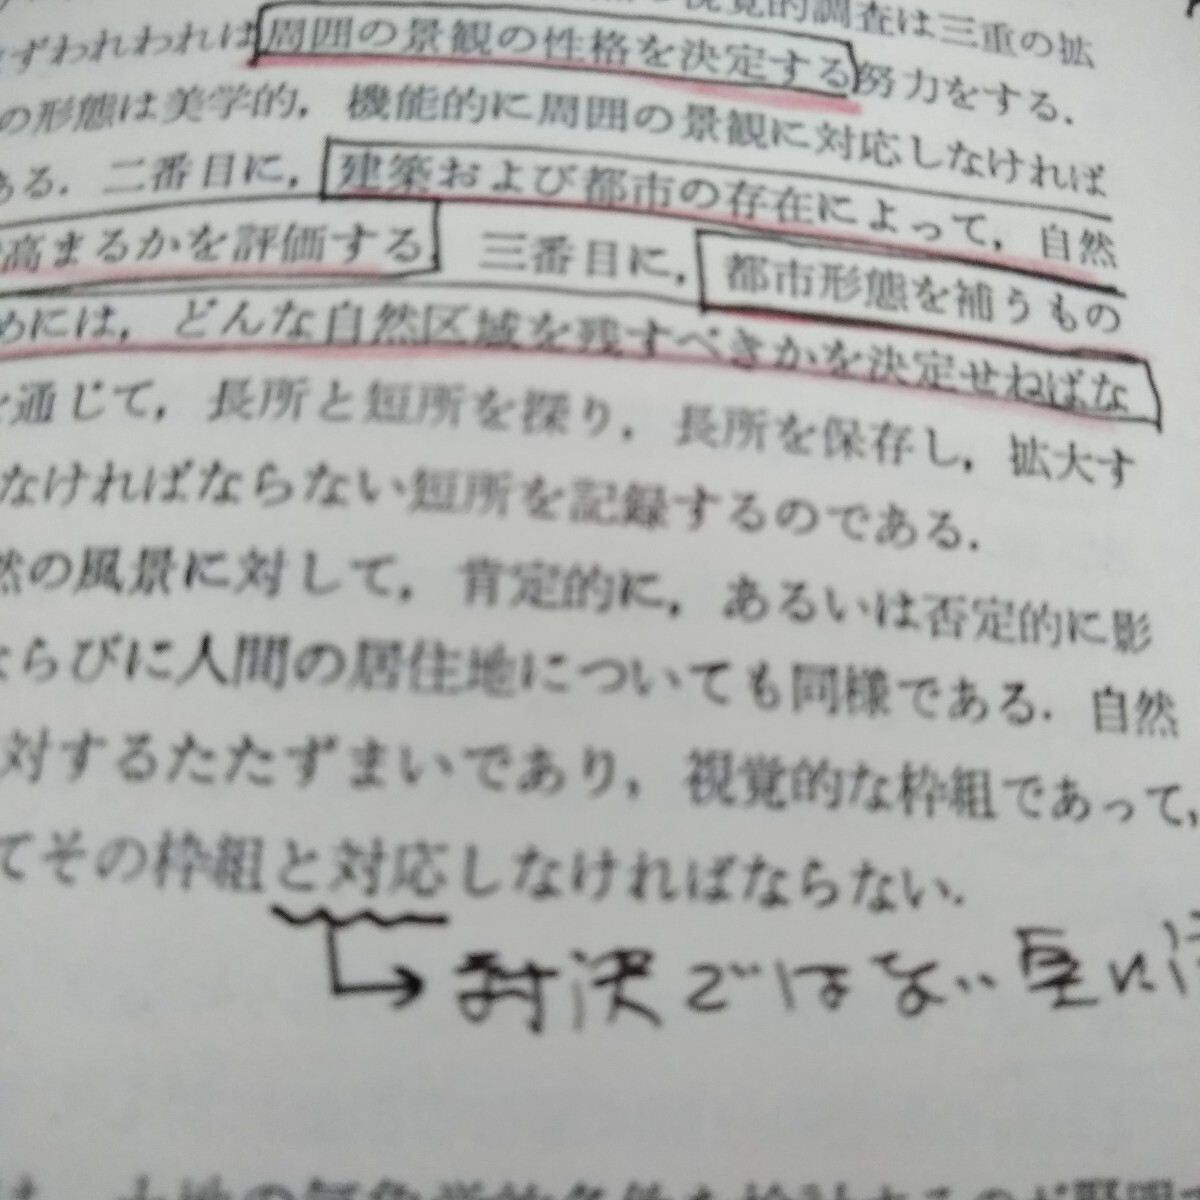 視覚的調査は三重の拡
ずわれわれは周囲の景観の性格を決定する努力をする．
の形態は美学的，機能的に周囲の景観に対応しなければ
ある．二番目に，建築および都市の存在によって，自然
高まるかを評価する　三番目に，都市形態を補うもの
めには，どんな自然区域を残すべきかを決定せねばな
通じて，長所と短所を探り，長所を保存し，拡大す
なければならない短所を記録するのである．
然の風景に対して，肯定的に，あるいは否定的に影
ならびに人間の居住地についても同様である．自然
対するたたずまいであり，視覚的な枠組であって，
てその枠組と対応しなければならない．
対決ではない